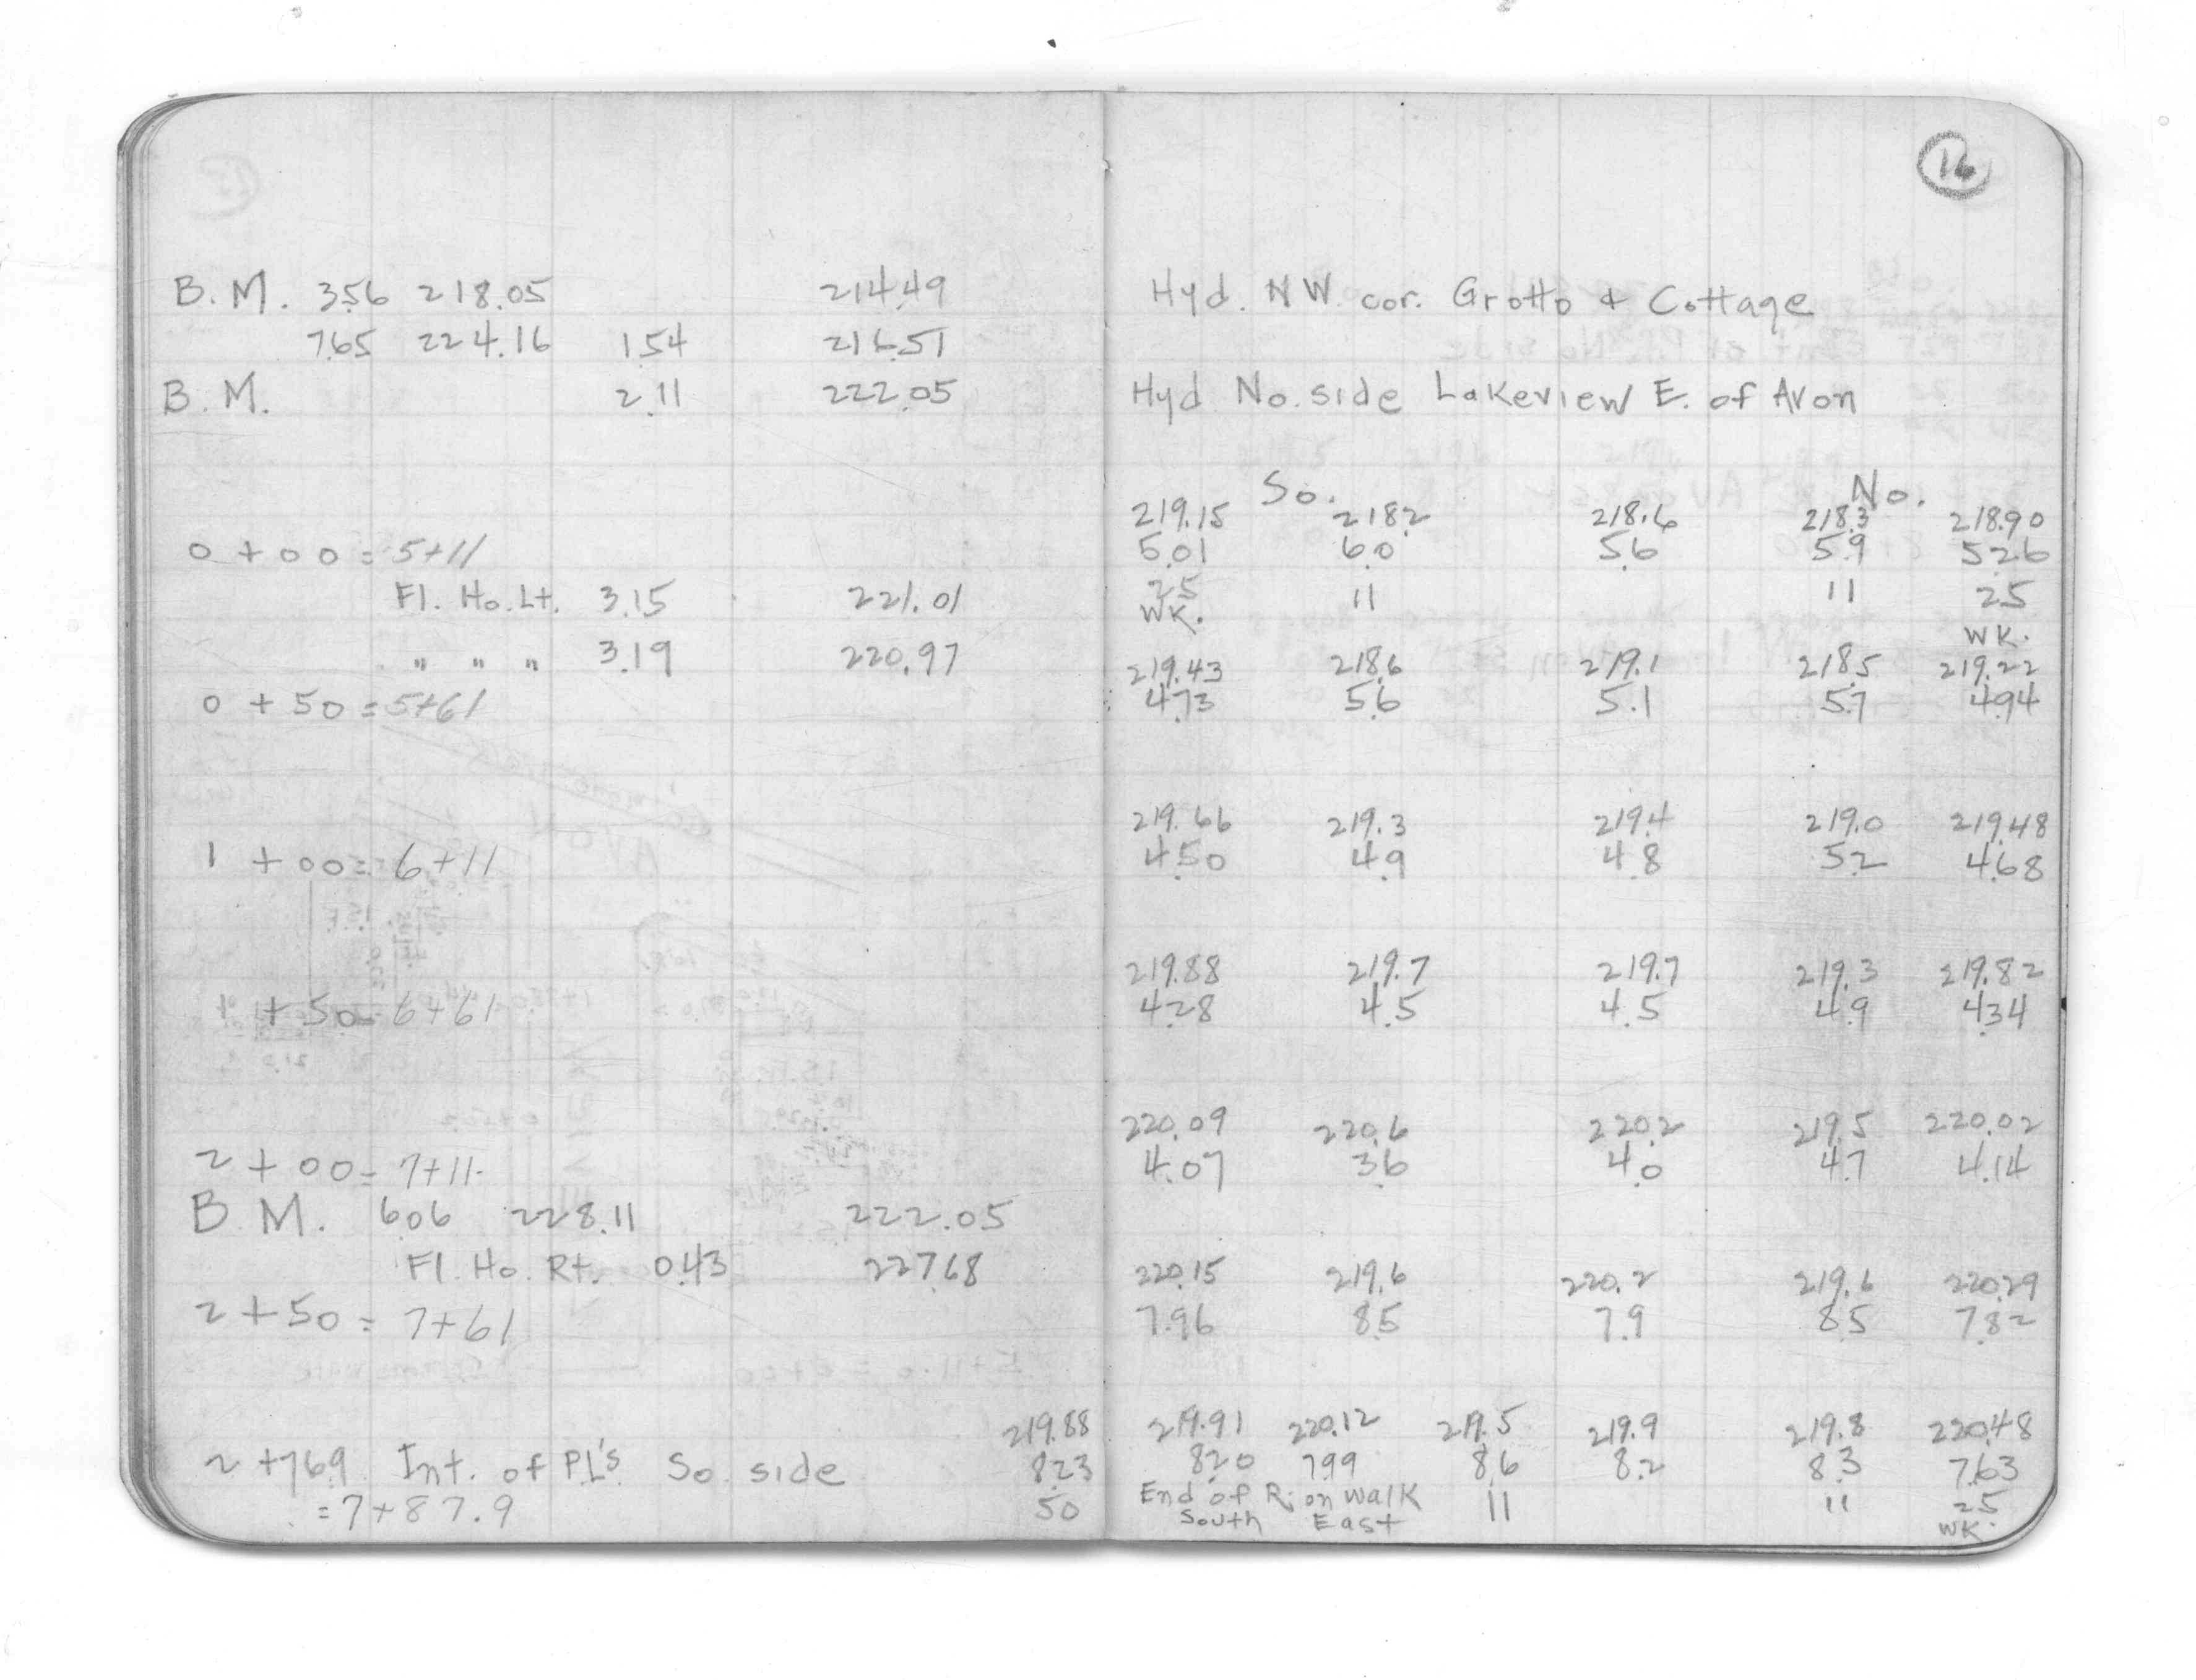 16
B.M. 3.56 218.05 214.49 Hyd. NW. cor. Grotto & Cottage
7.65 224.16 1.54 216.51
B.M. 2.11 222.05 Hyd No. side Lakeview E. of Avon
So. No.
219.15 218.2 218.6 218.3 218.90
0 + 00 = 5+11 5.01 6.0 5.6 5.9 5.26
Fl. Ho. Lt. 3.15 221.01 25 11 11 25
WK. WK.
" " " 3.19 220.97 219.43 218.6 219.1 218.5 219.22
0 + 50 = 5+61 4.73 5.6 5.1 5.7 4.94
219.66 219.3 219.4 219.0 219.48
1 + 00 = 6+11 4.50 4.9 4.8 5.2 4.68
219.88 219.7 219.7 219.3 219.82
1 + 50 = 6+61 4.28 4.5 4.5 4.9 4.34
220.09 220.6 220.2 219.5 220.02
2 + 00 = 7+11 4.07 3.6 4.0 4.7 4.14
B.M. 6.06 228.11 222.05
Fl. Ho. Rt. 0.43 227.68 220.15 219.6 220.2 219.6 220.29
2 + 50 = 7+61 7.96 8.5 7.9 8.5 7.82
219.88 219.91 220.12 219.5 219.9 219.8 220.48
2 + 76.9 Int. of PL's So. side 8.23 8.20 7.99 8.6 8.2 8.3 7.63
= 7+87.9 50 End of R. on Walk 11 11 25
South East WK.